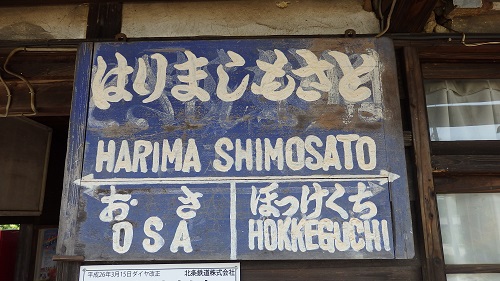 はりましもさと
HARIMA SHIMOSATO
おさ
OSA
ほっけくち
HOKKEGUCHI
平成26年3月15日ダイヤ改正
北条鉄道株式会社